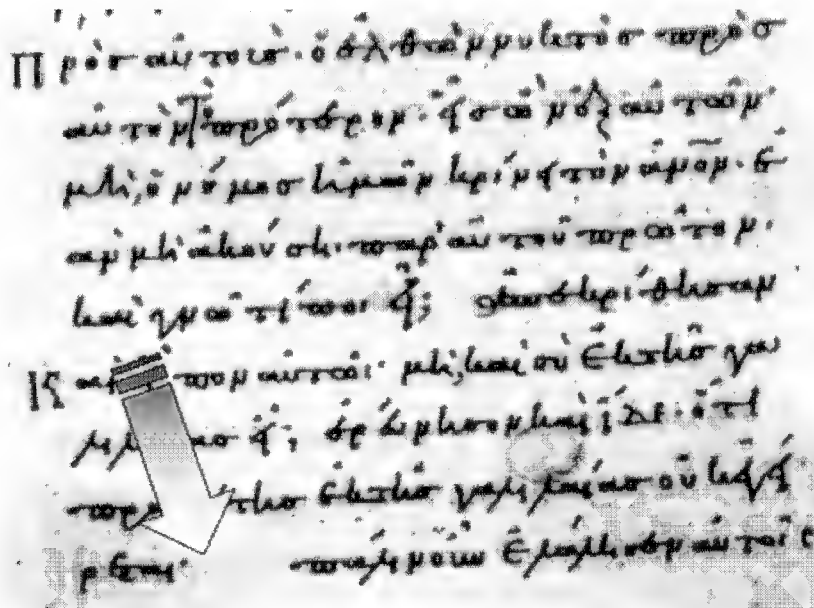 Πρὸς αὐτούς· ὁ ἐλθὼν νυκτὸς πρὸς
αὐτὸν πρότερον· εἷς ὢν ἐξ αὐτῶν·
μὴ ὁ νόμος ἡμῶν κρίνει τὸν ἄνον· ἐ
ὰν μὴ ἀκούσῃ παρ' αὐτοῦ πρῶτον·
καὶ γνῶ τί ποιεῖ; ἀπεκρίθησαν
Καὶ αὐτῷ· μὴ καὶ σὺ ἐκ τῆς γα
εἶ; ἐρεύνησον καὶ ἴδε· ὅτι
ἐκ τῆς γαλιλαίας οὐκ ἐγεί
ρεται· πάλιν οὖν ἐλάλησεν αὐτοῖς